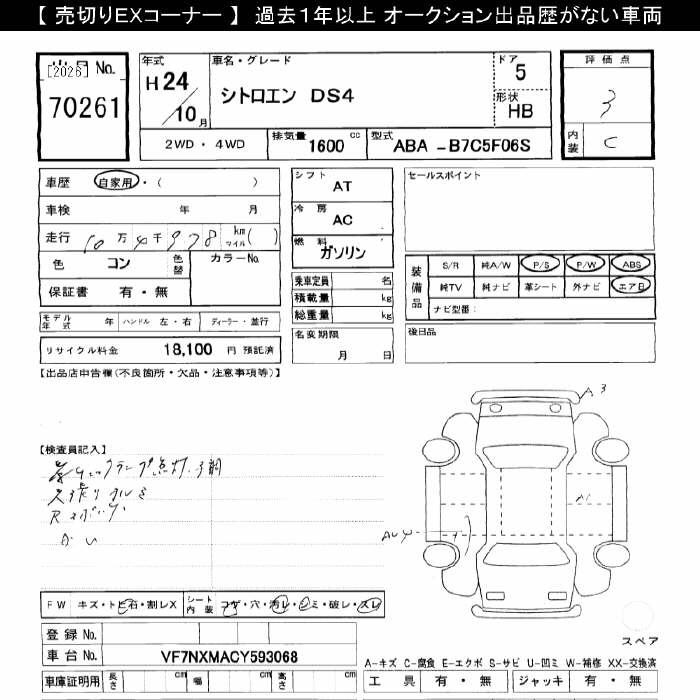 【 売切りEXコーナー 】 過去1年以上 オークション出品歴がない車両
[2026] No.
70261
年式
H 24
10 月
車名・グレード
シトロエン DS4
ドア
5
形状
HB
2WD ・ 4WD
排気量 1600 cc
型式 ABA -B7C5F06S
評価点
3
内装 C
車歴 自家用・( )
車検 年 月
走行 10 万 4 千 978 km マイル ( )
色 コン 色替 カラーNo.
保証書 有・無
シフト AT
冷房 AC
燃料 ガソリン
乗車定員 名
積載量 kg
総重量 kg
セールスポイント
装備品
S/R 純A/W P/S P/W ABS
純TV 純ナビ 革シート 外ナビ エアB
ナビ型番:
モデル年式 年 ハンドル 左・右 ディーラー・並行
名変期限
月 日
後日品
リサイクル料金 18,100 円 預託済
【出品店申告欄(不良箇所・欠品・注意事項等)】
A3
【検査員記入】
ランプ点灯
A1
FW キズ・トビ石・割レX シート内装 コゲ・穴・汚レ・シミ・破レ・スレ
登録 No.
車台 No. VF7NXMACY593068
スペア
A-キズ C-腐食 E-エクボ S-サビ U-凹ミ W-補修 XX-交換済
車庫証明用 長さ cm 幅 cm 高さ cm
工具 有・無 ジャッキ 有・無